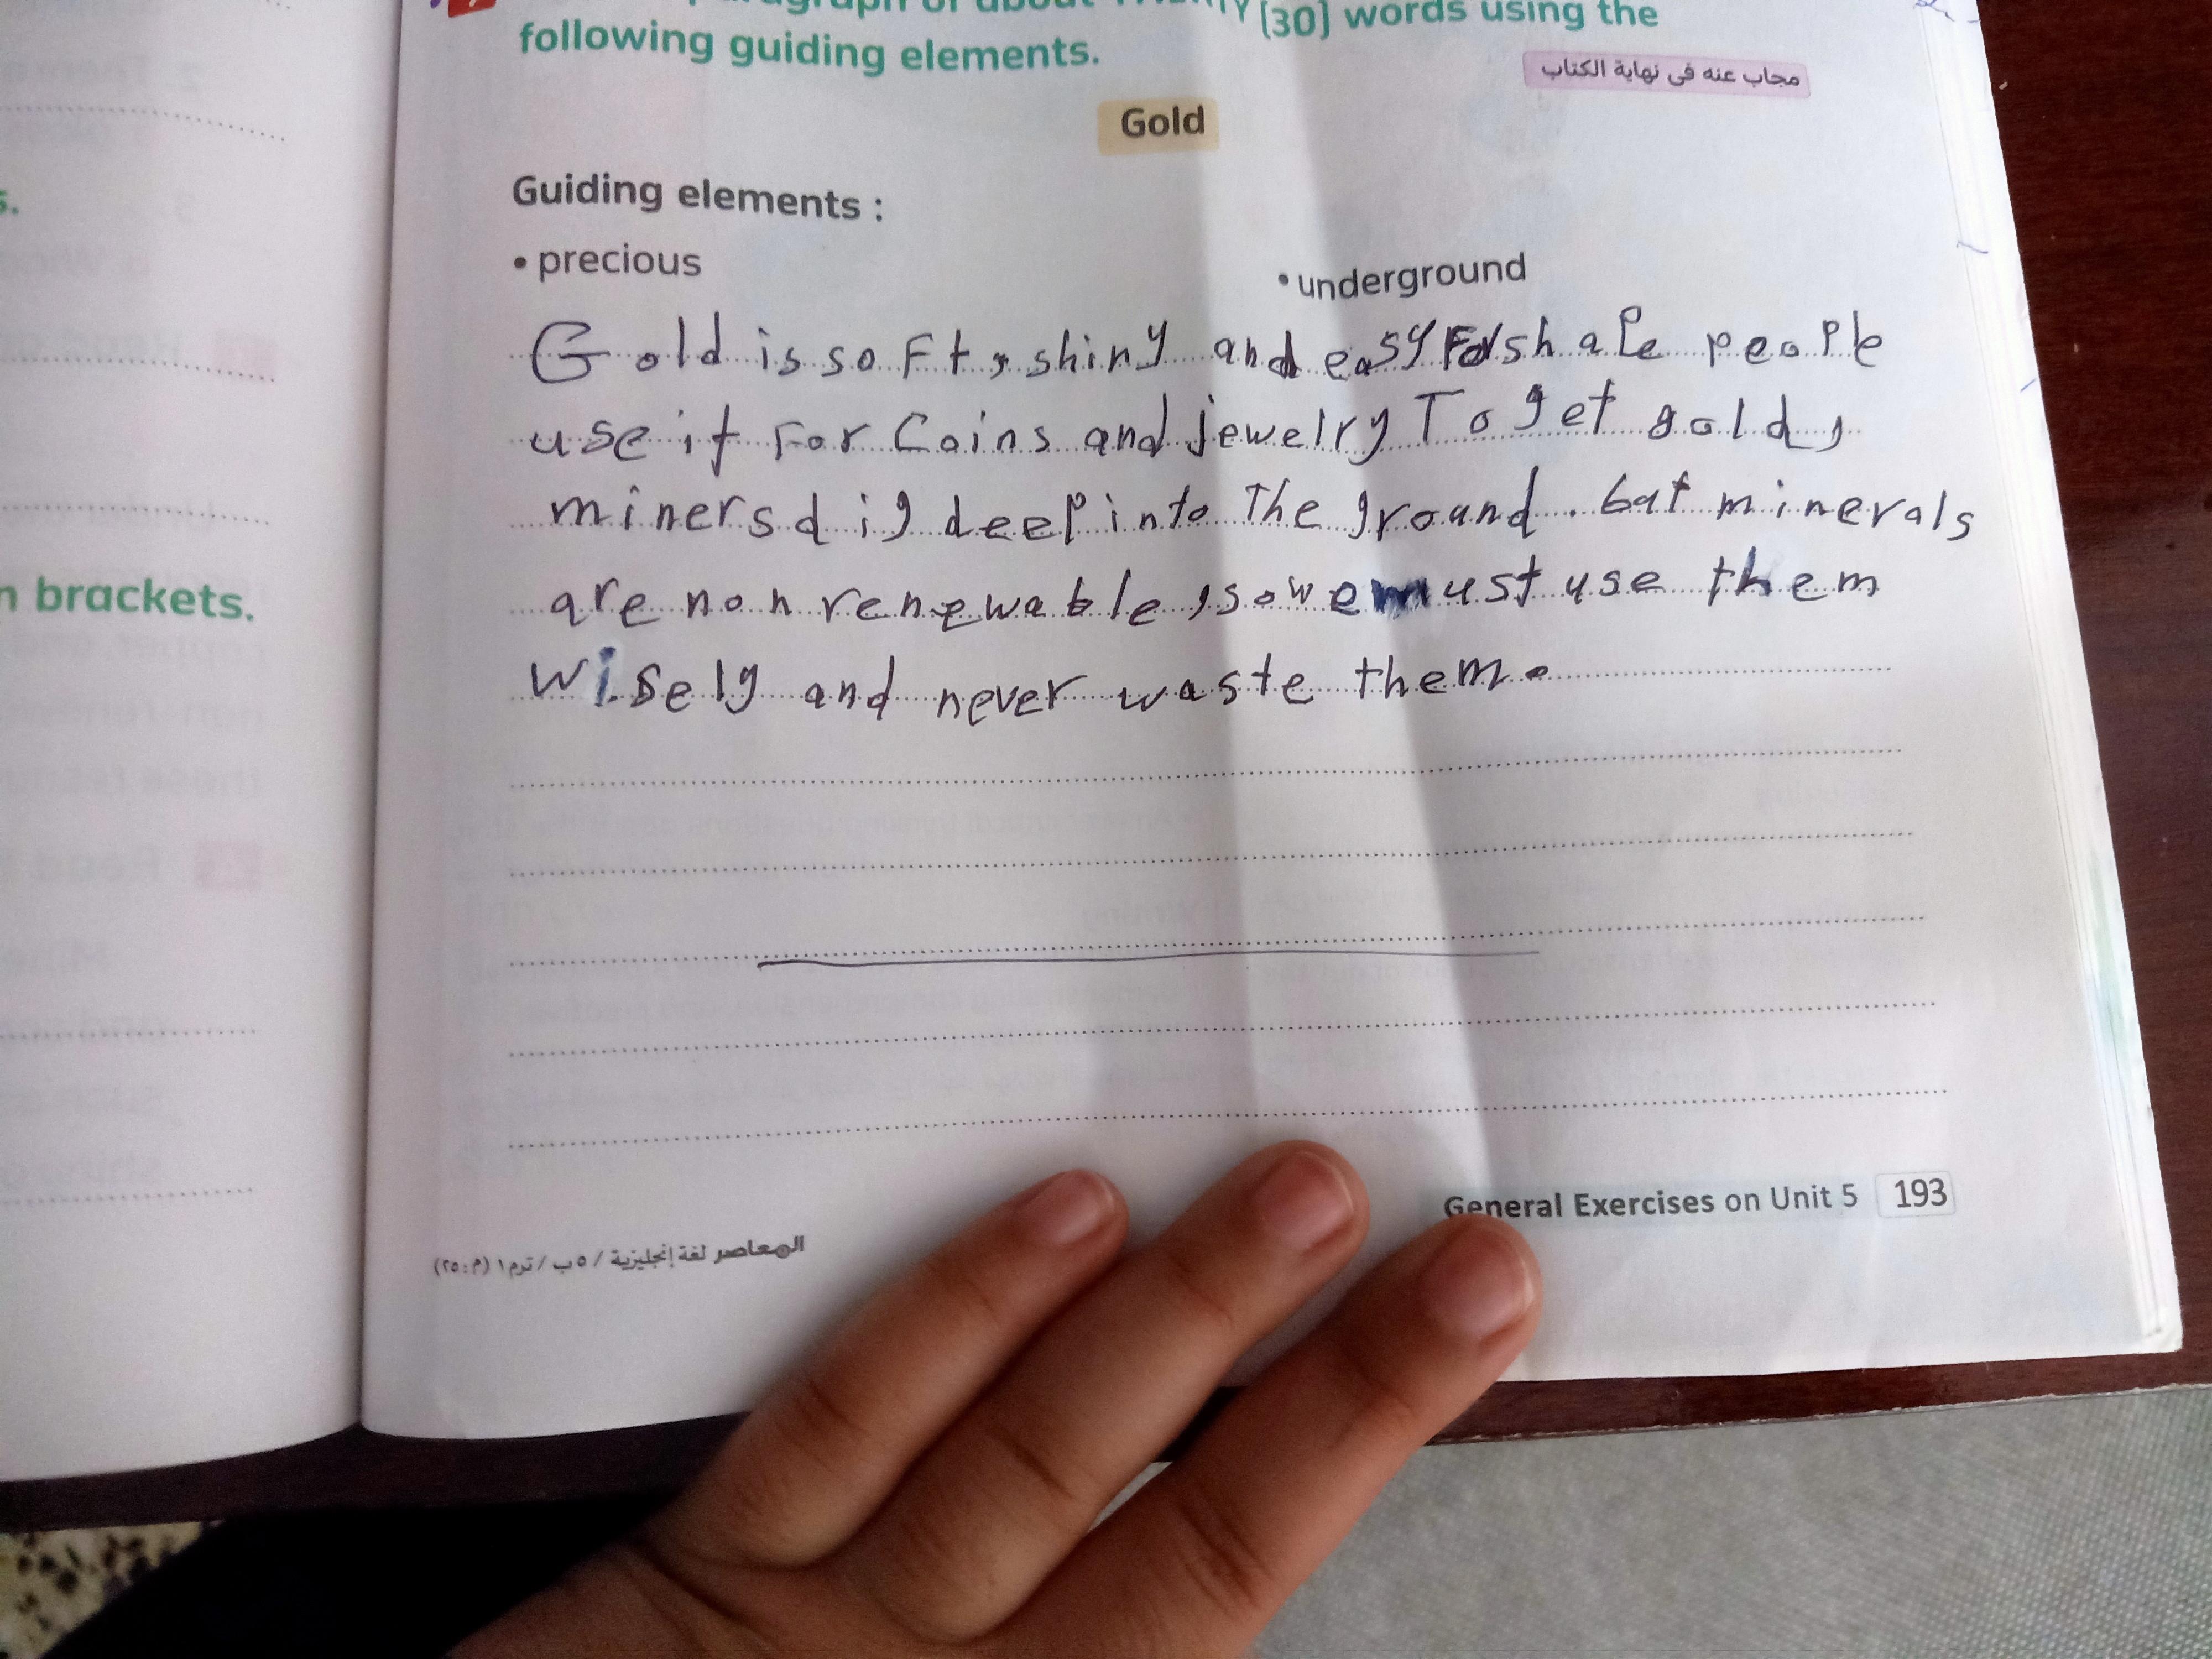 of about THIRTY [30] words using the
following guiding elements.
مجاب عنه فى نهاية الكتاب
Gold
Guiding elements :
• precious
• underground
Gold is soft, shiny and easy shape people
use it For Coins and jewelry To get gold,
miners dig deep into The ground. but minerals
are non renewable, so we must use them
wisely and never waste them.
s.
n brackets.
General Exercises on Unit 5 193
المعاصر لغة إنجليزية / ٥ ب / ترم ١ (م: ٢٥)